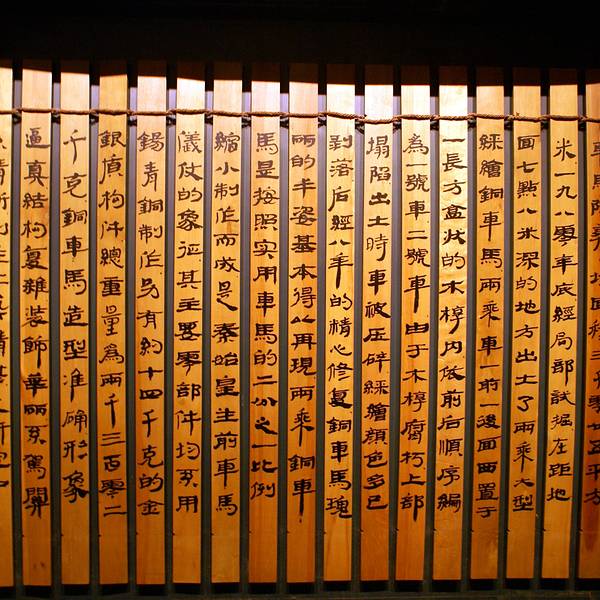 車馬陪葬坑面積三千零廿五平方
米一九八零年底經局部試掘在距地
面七點八米深的地方出土了兩乘大型
綵繪銅車馬兩乘車一前一後面西置于
一長方盒狀的木椁内依前后順序編
爲一號車二號車由于木椁腐朽上部
塌陷出土時車被压碎綵繪顔色多已
剥落后經八年的精心修复銅車馬瑰
丽的丰姿基本得以再現兩乘銅車
馬是按照实用車馬的二分之一比例
縮小制作而成是秦始皇生前車馬
儀仗的象征其主要零部件均系用
錫青銅制作另有約十四千克的金
銀質构件總重量爲兩千三百零二
千克銅車馬造型准确形象
逼真結构复雜装飾華丽系駕關